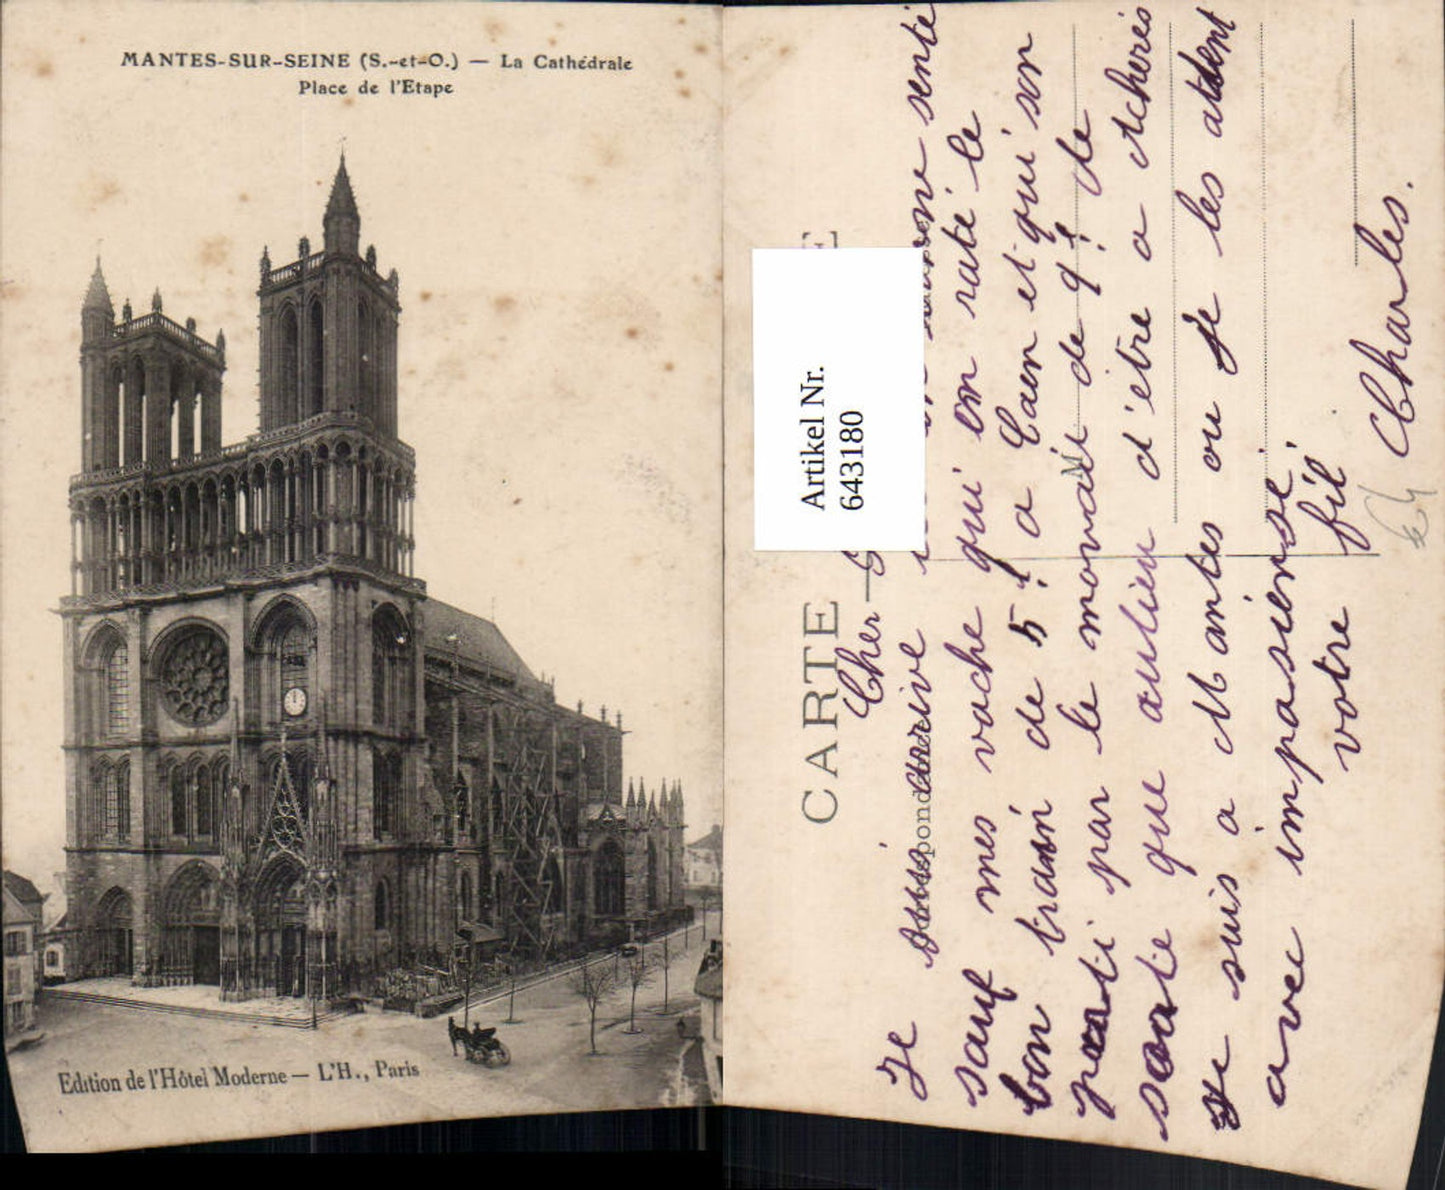 MANTES-SUR-SEINE (S.-et-O.) — La Cathédrale
Place de l'Etape
Edition de l'Hôtel Moderne — L'H., Paris
CARTE
Artikel Nr.
643180
Cher
Je suis arrive bonne santé
sauf mes vache qui en raté le
bon train de 5! a Caen et qui son
parti par le mouvais de 9! de
sorte que aulieu d'être a Acheres
je suis a Mantes ou je les attent
avec impasiense
votre fil
Charles.